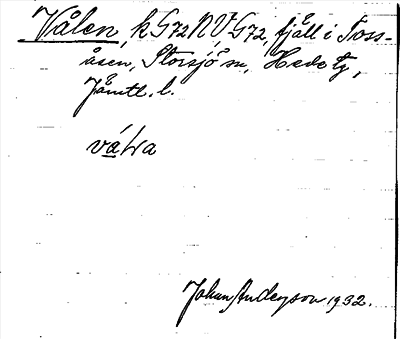 Vålen, k G72 N, V G72, fjäll i Foss-
åsen, Storsjö sn, Hede tg,
Jämtl. l.
váLa
Johan Anderson 1932.